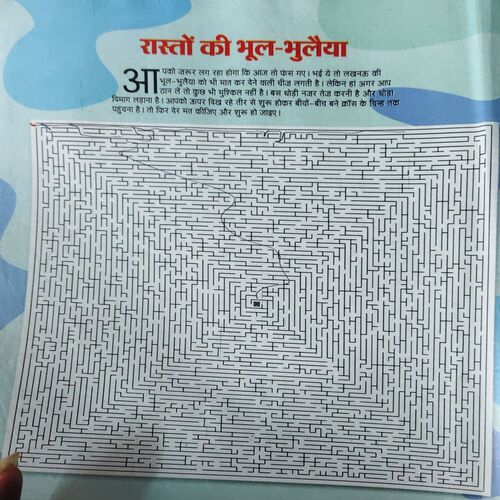 रास्तों की भूल-भुलैया
आपको जरूर लग रहा होगा कि आज तो फंस गए। भई ये तो लखनऊ की
भूल-भुलैया को भी मात कर देने वाली चीज लगती है। लेकिन हां अगर आप
ठान लें तो कुछ भी मुश्किल नहीं है। बस थोड़ी नजर तेज करनी है और थोड़ा
दिमाग लड़ाना है। आपको ऊपर दिख रहे तीर से शुरू होकर बीचों-बीच बने क्रॉस के चिन्ह तक
पहुंचना है। तो फिर देर मत कीजिए और शुरू हो जाइए।